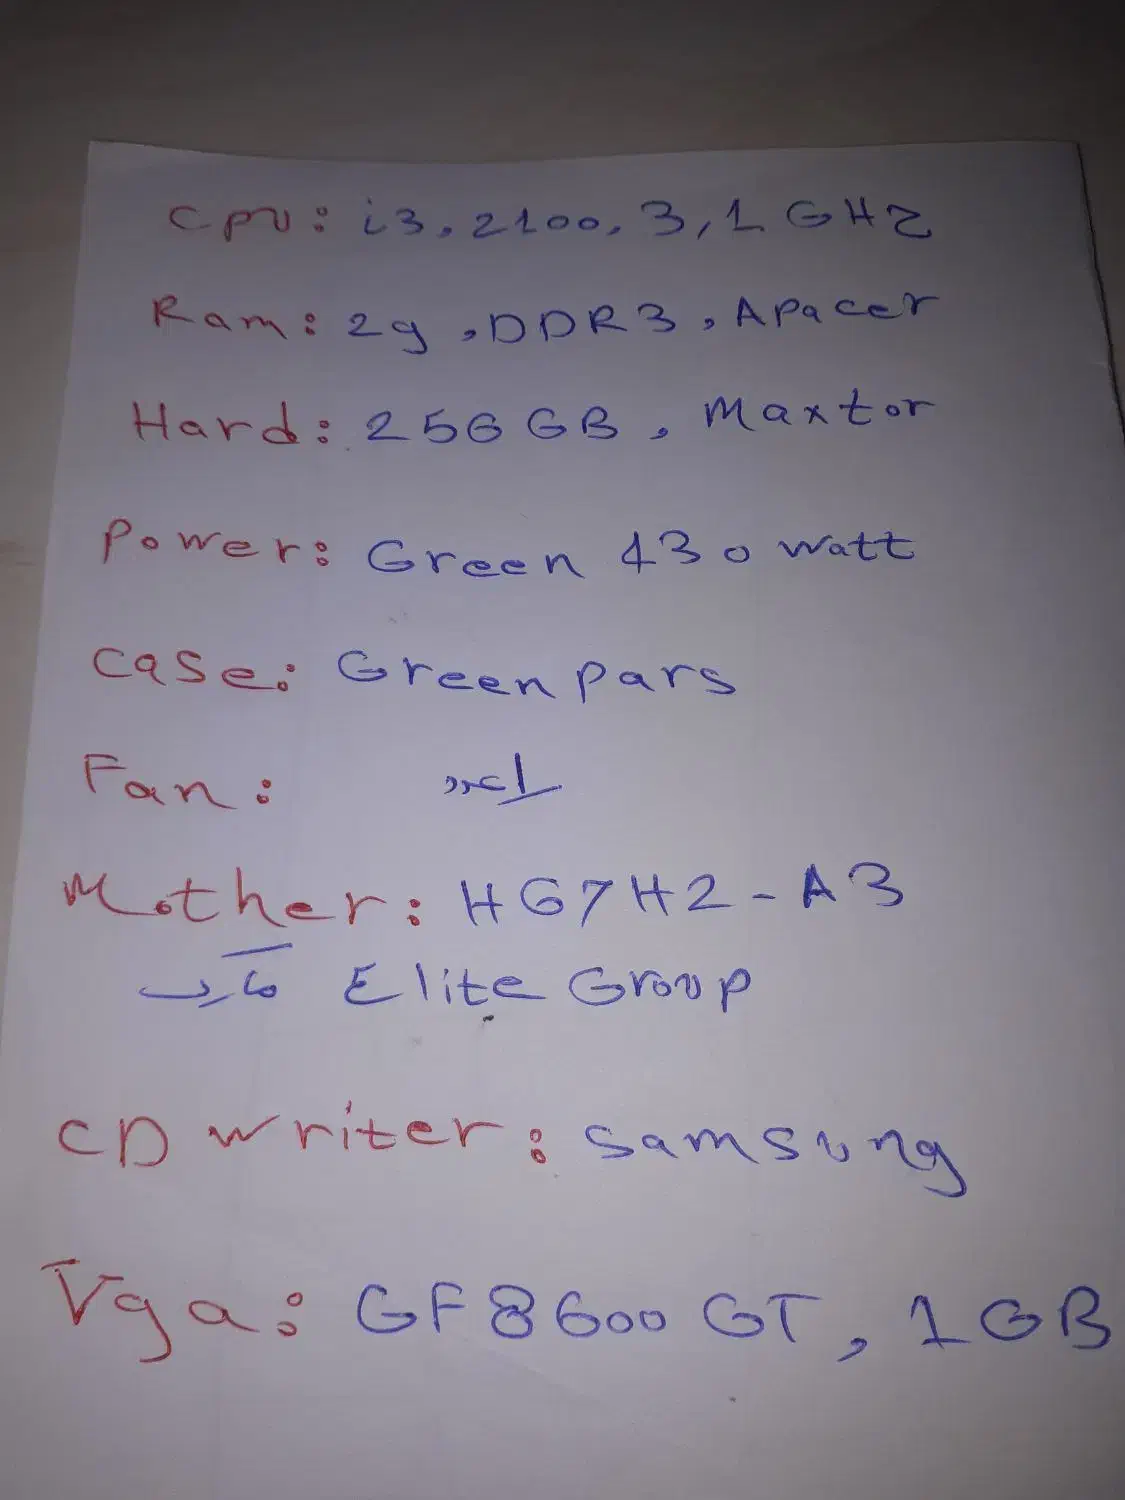 Cpu: i3, 2100, 3,1 GHz
Ram: 2g, DDR3, Apacer
Hard: 256 GB, Maxtor
Power: Green 430 watt
Case: Green pars
Fan: 1 عدد
Mother: H67H2-A3
مارک Elite Group
CD writer: Samsung
Vga: GF8600 GT, 1GB